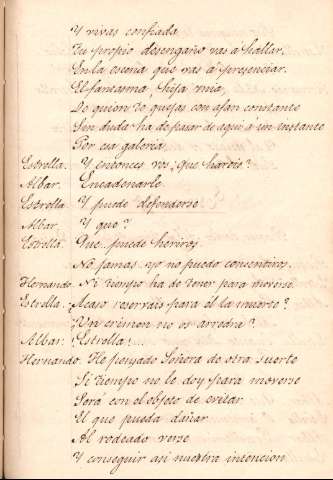 Y vivas confiada
Tu propio desengaño vas á hallar,
En la escena que vas á presenciar.
El fantasma, hija mia,
De quien te quejas con afan constante
Sin duda ha de pasar de aqui á un instante
Por esa galeria.
Estrella. Y entonces vos, que hareis?
Albar. Encadenarle.
Estrella. Y puede defenderse.
Albar. Y que?
Estrella. Que.. puede heriros.
No jamas.. yo no puedo consentiros.
Hernando. Ni tiempo ha de tener para moverse
Estrella. ¿Acaso reservais para él la muerte?
¿Un crimen no os arredra?
Albar. ¡Estrella!....
Hernando. He pensado Señora de otra suerte
Si tiempo no le doy para moverse
Será con el objeto de evitar
El que pueda dañar
Al rodeado verse
Y conseguir asi nuestra intencion